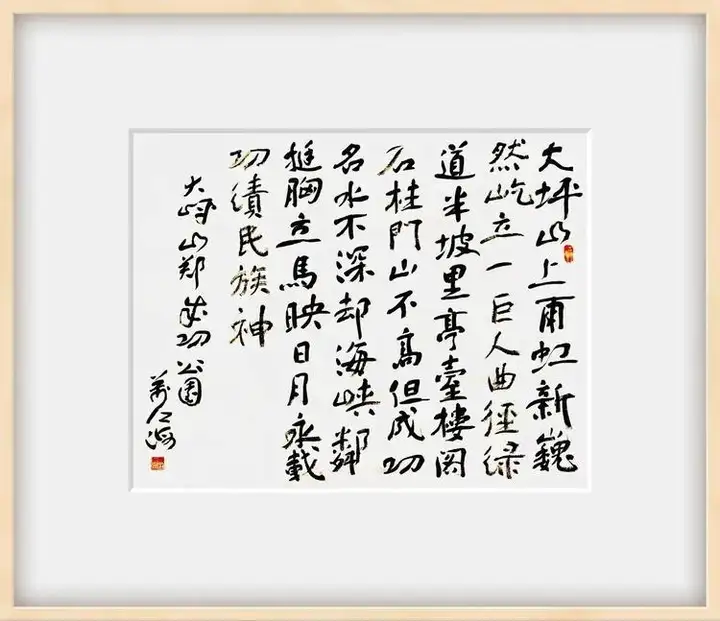 大坪山上雨虹新巍
然屹立一巨人曲徑绿
道半坡里亭臺樓阁
石桂門山不高但成功
名水不深却海峡鄰
挺胸立馬映日月永載
功績民族神
大坪山郑成功公園